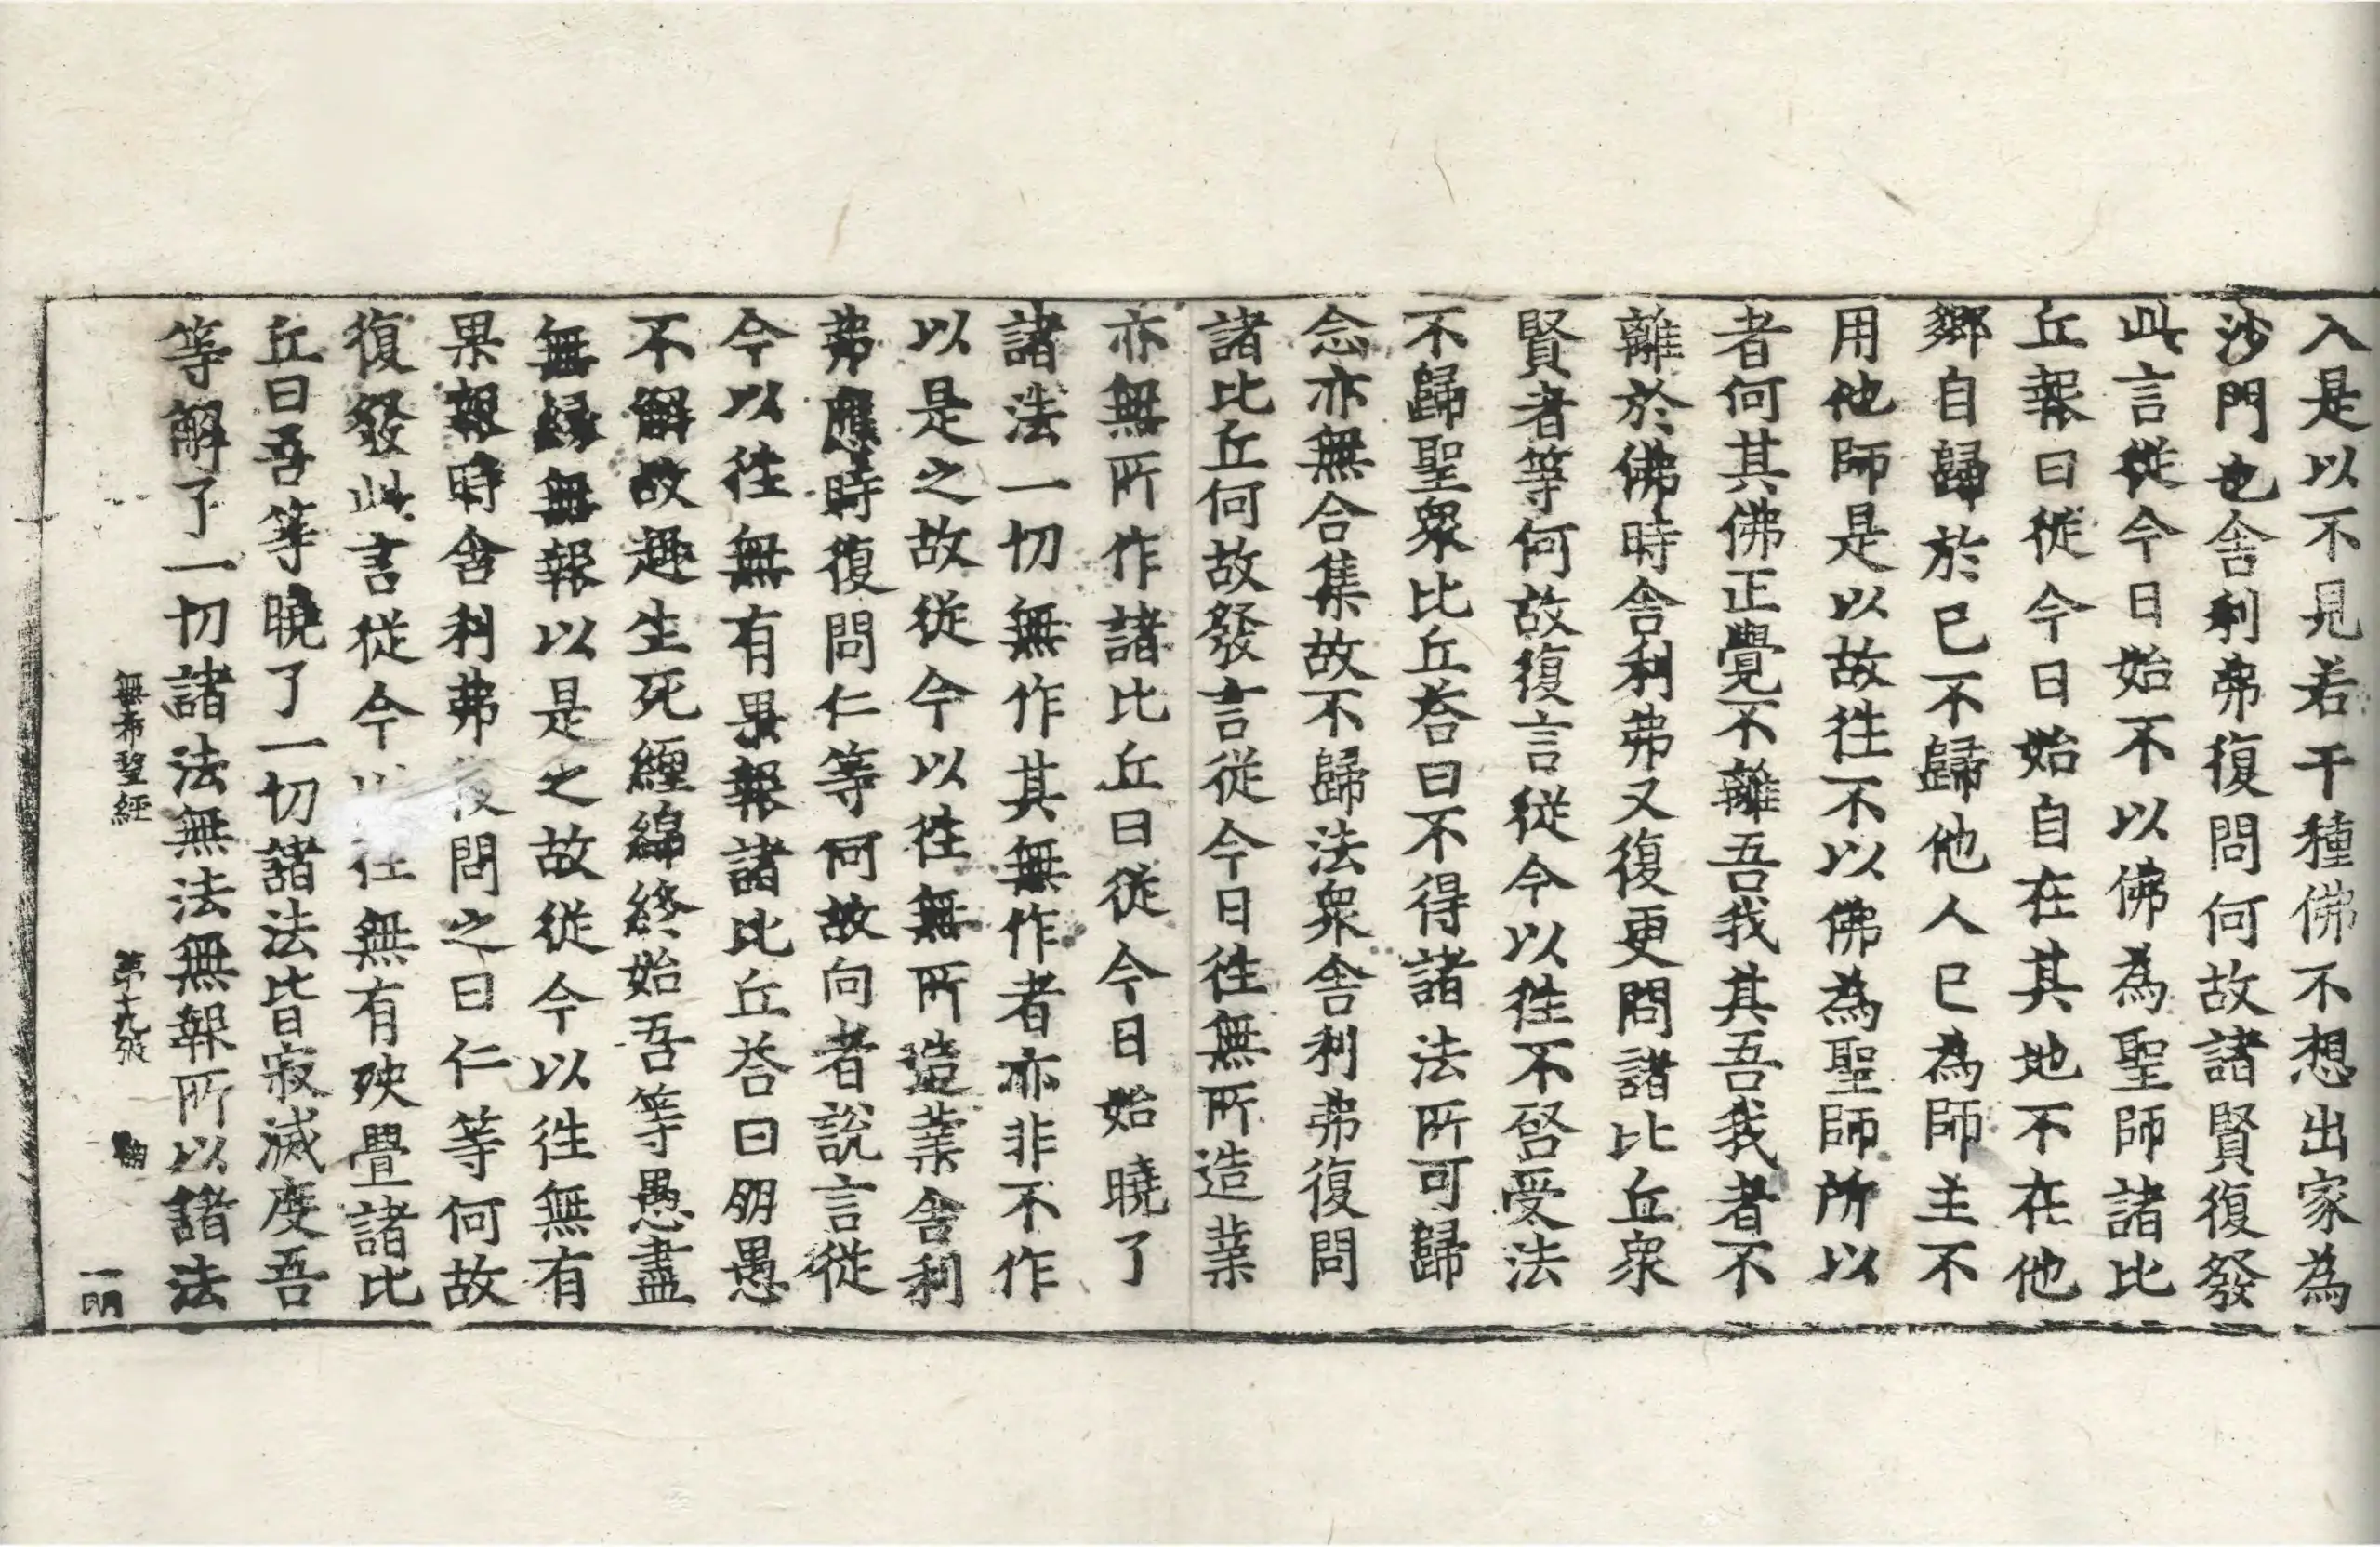 入是以不見若干種佛不想出家為
沙門也舍利弗復問何故諸賢復發
此言從今日始不以佛為聖師諸比
丘報曰從今日始自在其地不在他
鄉自歸於已不歸他人已為師主不
用他師是以故往不以佛為聖師所以
者何其佛正覺不離吾我其吾我者不
離於佛時舍利弗又復更問諸比丘眾
賢者等何故復言從今以往不啓受法
不歸聖眾比丘荅曰不得諸法所可歸
念亦無合集故不歸法眾舍利弗復問
諸比丘何故發言從今日往無所造業
亦無所作諸比丘曰從今日始曉了
諸法一切無作其無作者亦非不作
以是之故從今以往無所造業舍利
弗應時復問仁等何故向者說言從
今以往無有果報諸比丘荅曰朋愚
不解故趣生死纏綿終始吾等愚盡
無緣無報以是之故從今以往無有
果報時舍利弗復問之曰仁等何故
復發此言從今以往無有殃舋諸比
丘曰吾等曉了一切諸法皆寂滅度吾
等解了一切諸法無法無報所以諸法
無希聖經 第十九張 一明